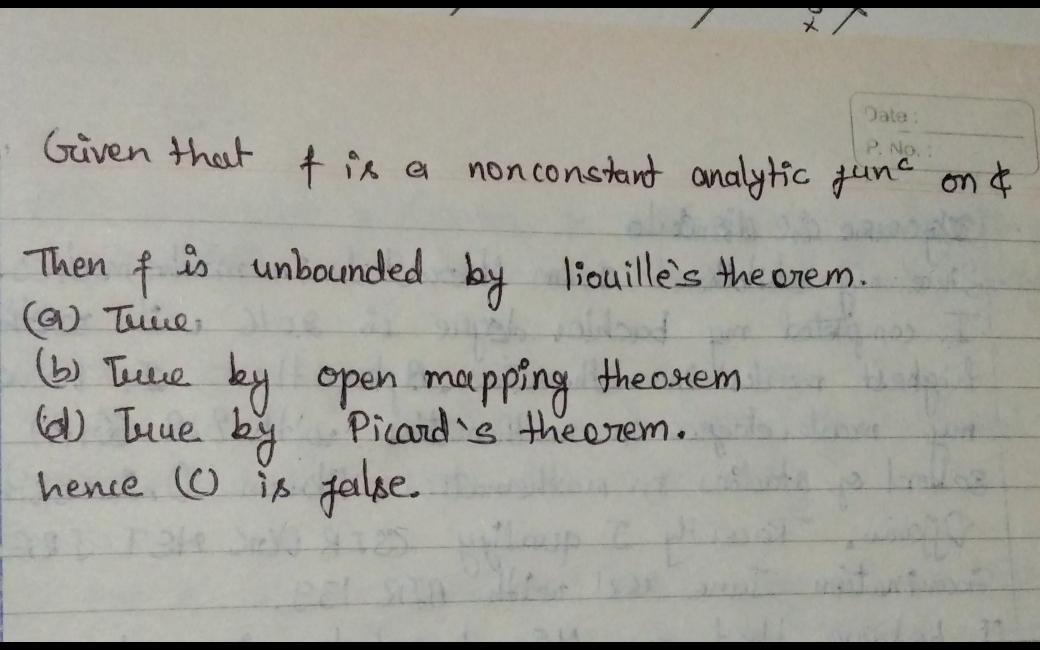 Date:
P. No.:
Given that f is a nonconstant analytic funᶜ on ₵
Then f is unbounded by liouille's theorem.
(a) True.
(b) True by open mapping theorem
(d) True by Picard's theorem.
hence (C) is false.